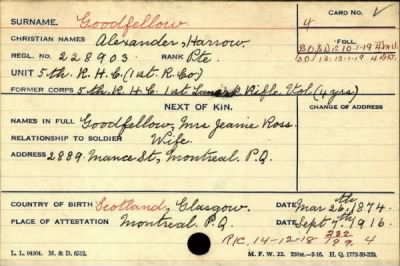 SURNAME. Goodfellow
CARD NO.
4
CHRISTIAN NAMES Alexander, Harrow.
FOLL.
REGL. NO. 228903 RANK Pte.
S.O.S. Dis 10-1-19 4
S.O.S. 13-1-19 4
UNIT 5th. R.H.C. (1st. R. Co)
FORMER CORPS 5th. R.H.C. 1st Lanark Rifle Vol. (4 yrs)
NEXT OF KIN.
CHANGE OF ADDRESS
NAMES IN FULL Goodfellow, Mrs Jeanie Ross.
RELATIONSHIP TO SOLDIER Wife.
ADDRESS 2889. Mance St, Montreal. P.Q.
COUNTRY OF BIRTH Scotland, Glasgow. DATE Mar. 26th. 1874.
PLACE OF ATTESTATION Montreal. P.Q. DATE Sept. 7th. 1916.
R/C. 14-12-18 232/789. 4
L. L. 94904. M. & D. 6512. M. F. W. 22. H. Q. 1772-39-339.